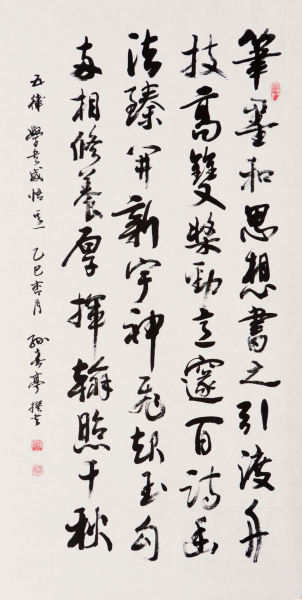 筆墨和思想書之引渡舟
技高雙槳勁意邃百詩幽
法臻開新宇神飛起玉勾
相修養厚揮翰照千秋
五律 學書感悟之一 乙巳杏月 孫亭撰書